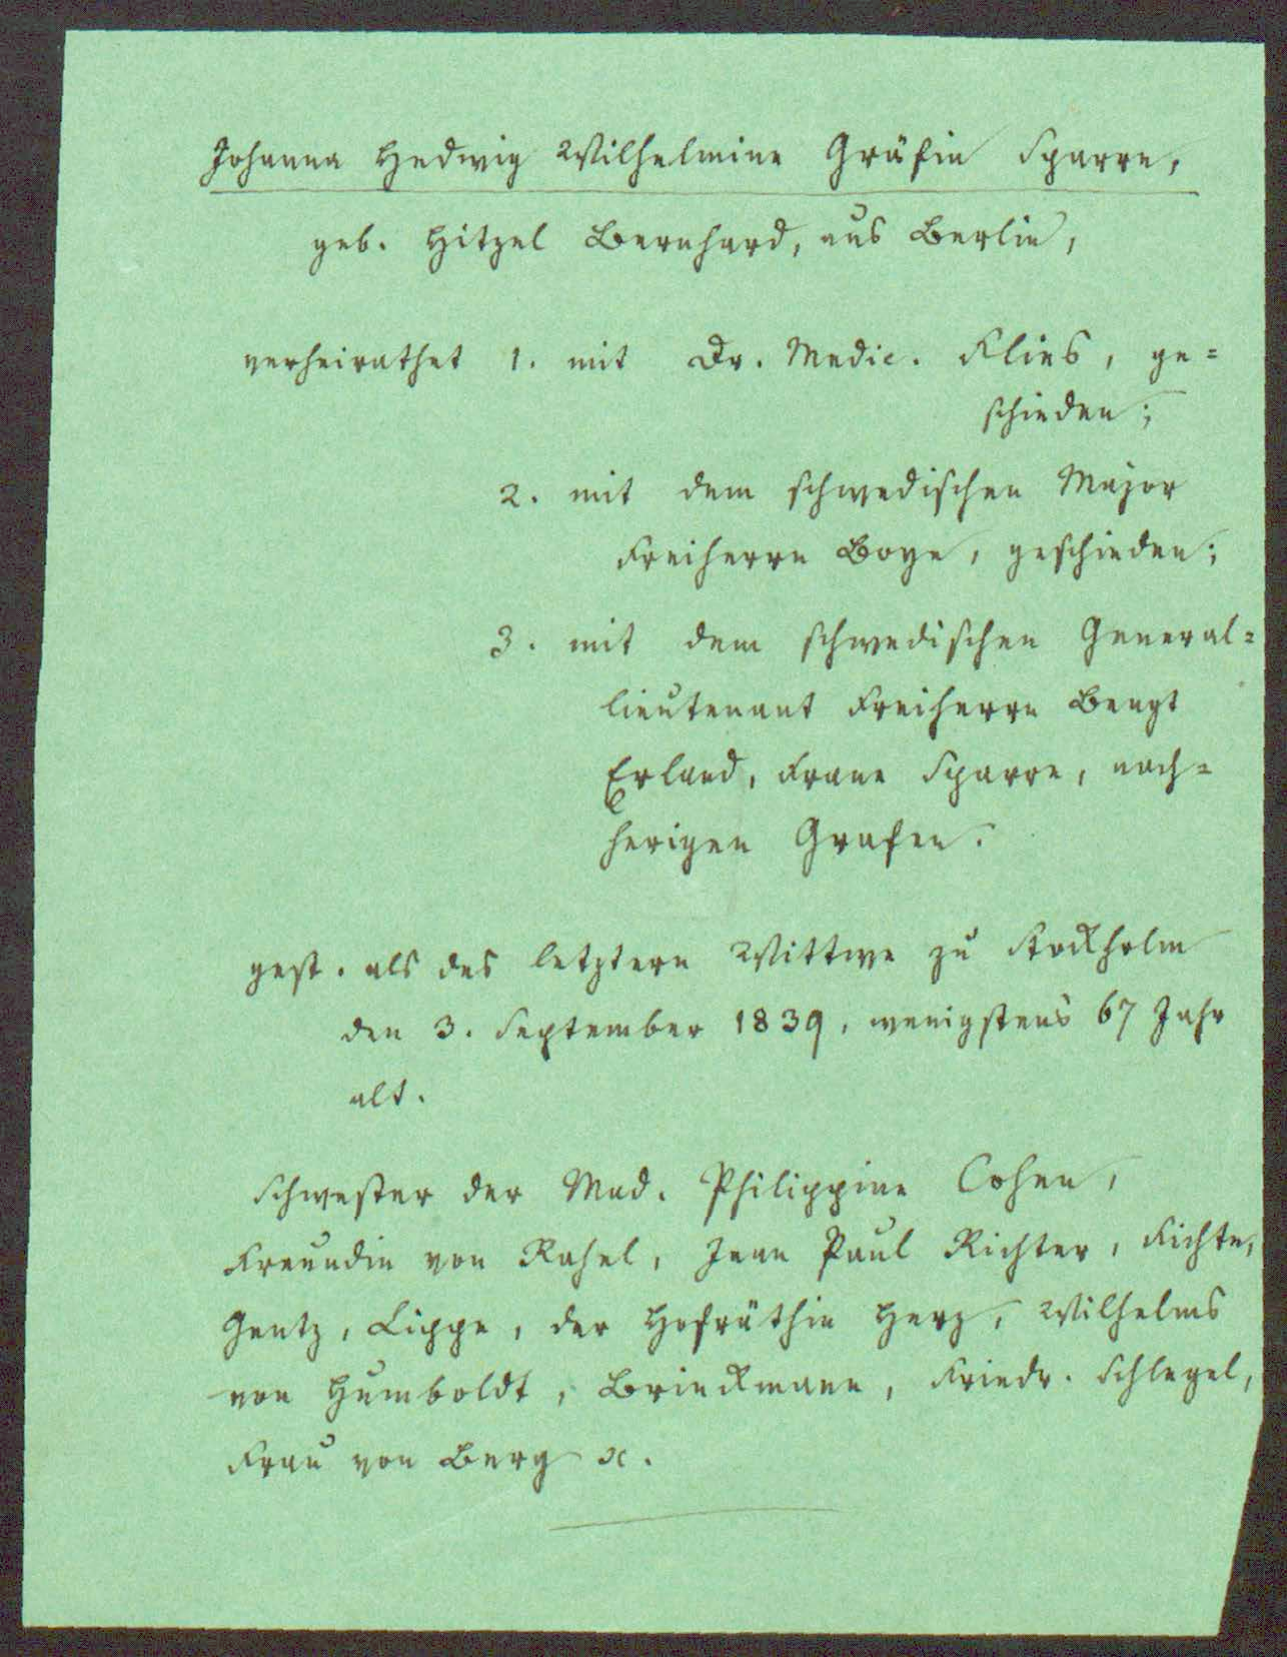 Johanna Hedwig Wilhelmine Gräfin Sparre,
geb. Hitzel Bernhard, aus Berlin,
verheirathet 1. mit Dr. Medic. Flies, ge=
schieden;
2. mit dem schwedischen Major
Freiherrn Boye, geschieden;
3. mit dem schwedischen General=
lieutenant Freiherrn Bengt
Erland, Franc Sparre, nach=
herigen Grafen.
gest. als des letztern Wittwe zu Stockholm
den 3. September 1839, wenigstens 67 Jahr
alt.
Schwester der Mad. Philippine Cohen,
Freundin von Rahel, Jean Paul Richter, Fichte,
Gentz, Lippe, der Hofräthin Herz, Wilhelms
von Humboldt, Brinckmann, Friedr. Schlegel,
Frau von Berg ꝛc.